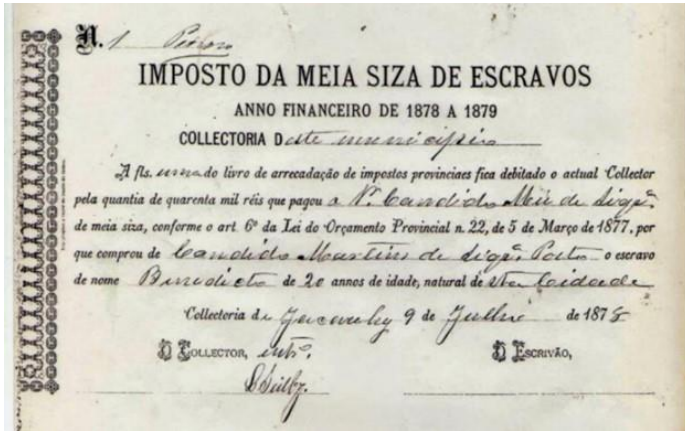 N. 1
IMPOSTO DA MEIA SIZA DE ESCRAVOS
ANNO FINANCEIRO DE 1878 A 1879
COLLECTORIA Deste municipio
A fls. uma do livro de arrecadação de impostos provinciaes fica debitado o actual Collector
pela quantia de quarenta mil réis que pagou a Candida de
de meia siza, conforme o art. 6º da Lei do Orçamento Provincial n. 22, de 5 de Março de 1877, por
que comprou de Candido Martins de Siqª Porto o escravo
de nome Benedicto de 20 annos de idade, natural de sta Cidade
Collectoria de Jacarehy 9 de Julho de 1878
O COLLECTOR, O ESCRIVÃO,